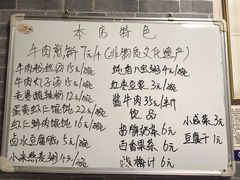 本店特色
牛肉煎饼7元/个(非物质文化遗产)
牛肉粉丝汤15元/碗
牛肉丸子汤15元/碗
老枣酸辣粉12元/碗
蛋黄虾仁馄饨22元/碗
虾仁鲜肉馄饨16元/碗
卤水豆腐脑5元/碗
小米熬麦粥4元/碗
八宝粥4元/碗
红枣豆浆3元/碗
酱牛肉35元/斤
饮品
酸梅汤6元
百香果茶6元
酸梅汁6元
小咸菜3元
豆腐干1元